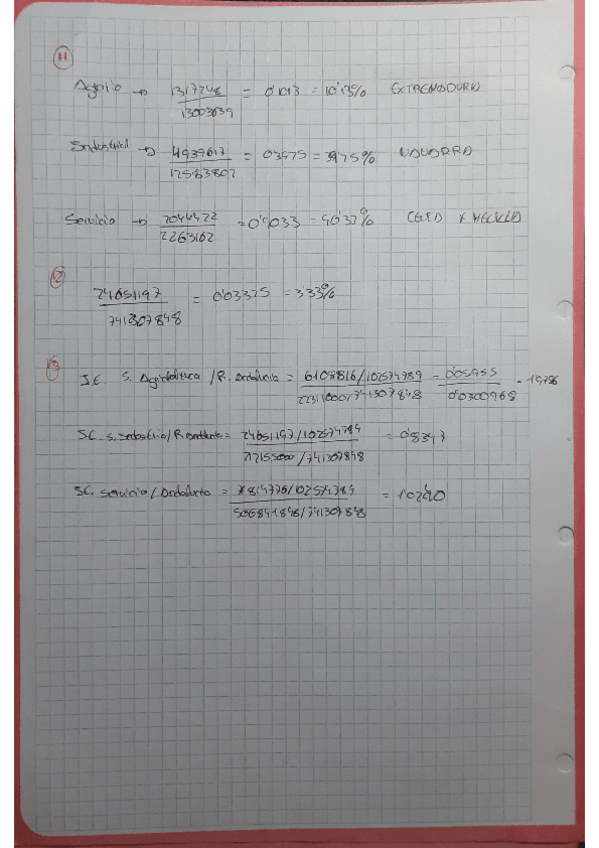 11
Agrario → 1317248 / 13003639 = 0'1013 = 10'13% EXTREMADURA
Industrial → 4939617 / 12583802 = 0'3975 = 39'75% NAVARRA
Servicio → 2044422 / 2263162 = 0'9033 = 90'33% CEUTA Y MELILLA
12
24651197 / 741307848 = 0'03325 = 3'33%
13
I.E. S. Agricultura / R. Andalucía = 6108816/102574789 / 22311000/741307848 = 0'05955 / 0'0300968 = 1'9786
S.C. S. Industria / R. Andalucía = 24651197/102574789 / 212155000/741307848 = 0'8347
S.C. Servicio / Andalucía = 71814776/102574789 / 506841848/741307848 = 1'0240